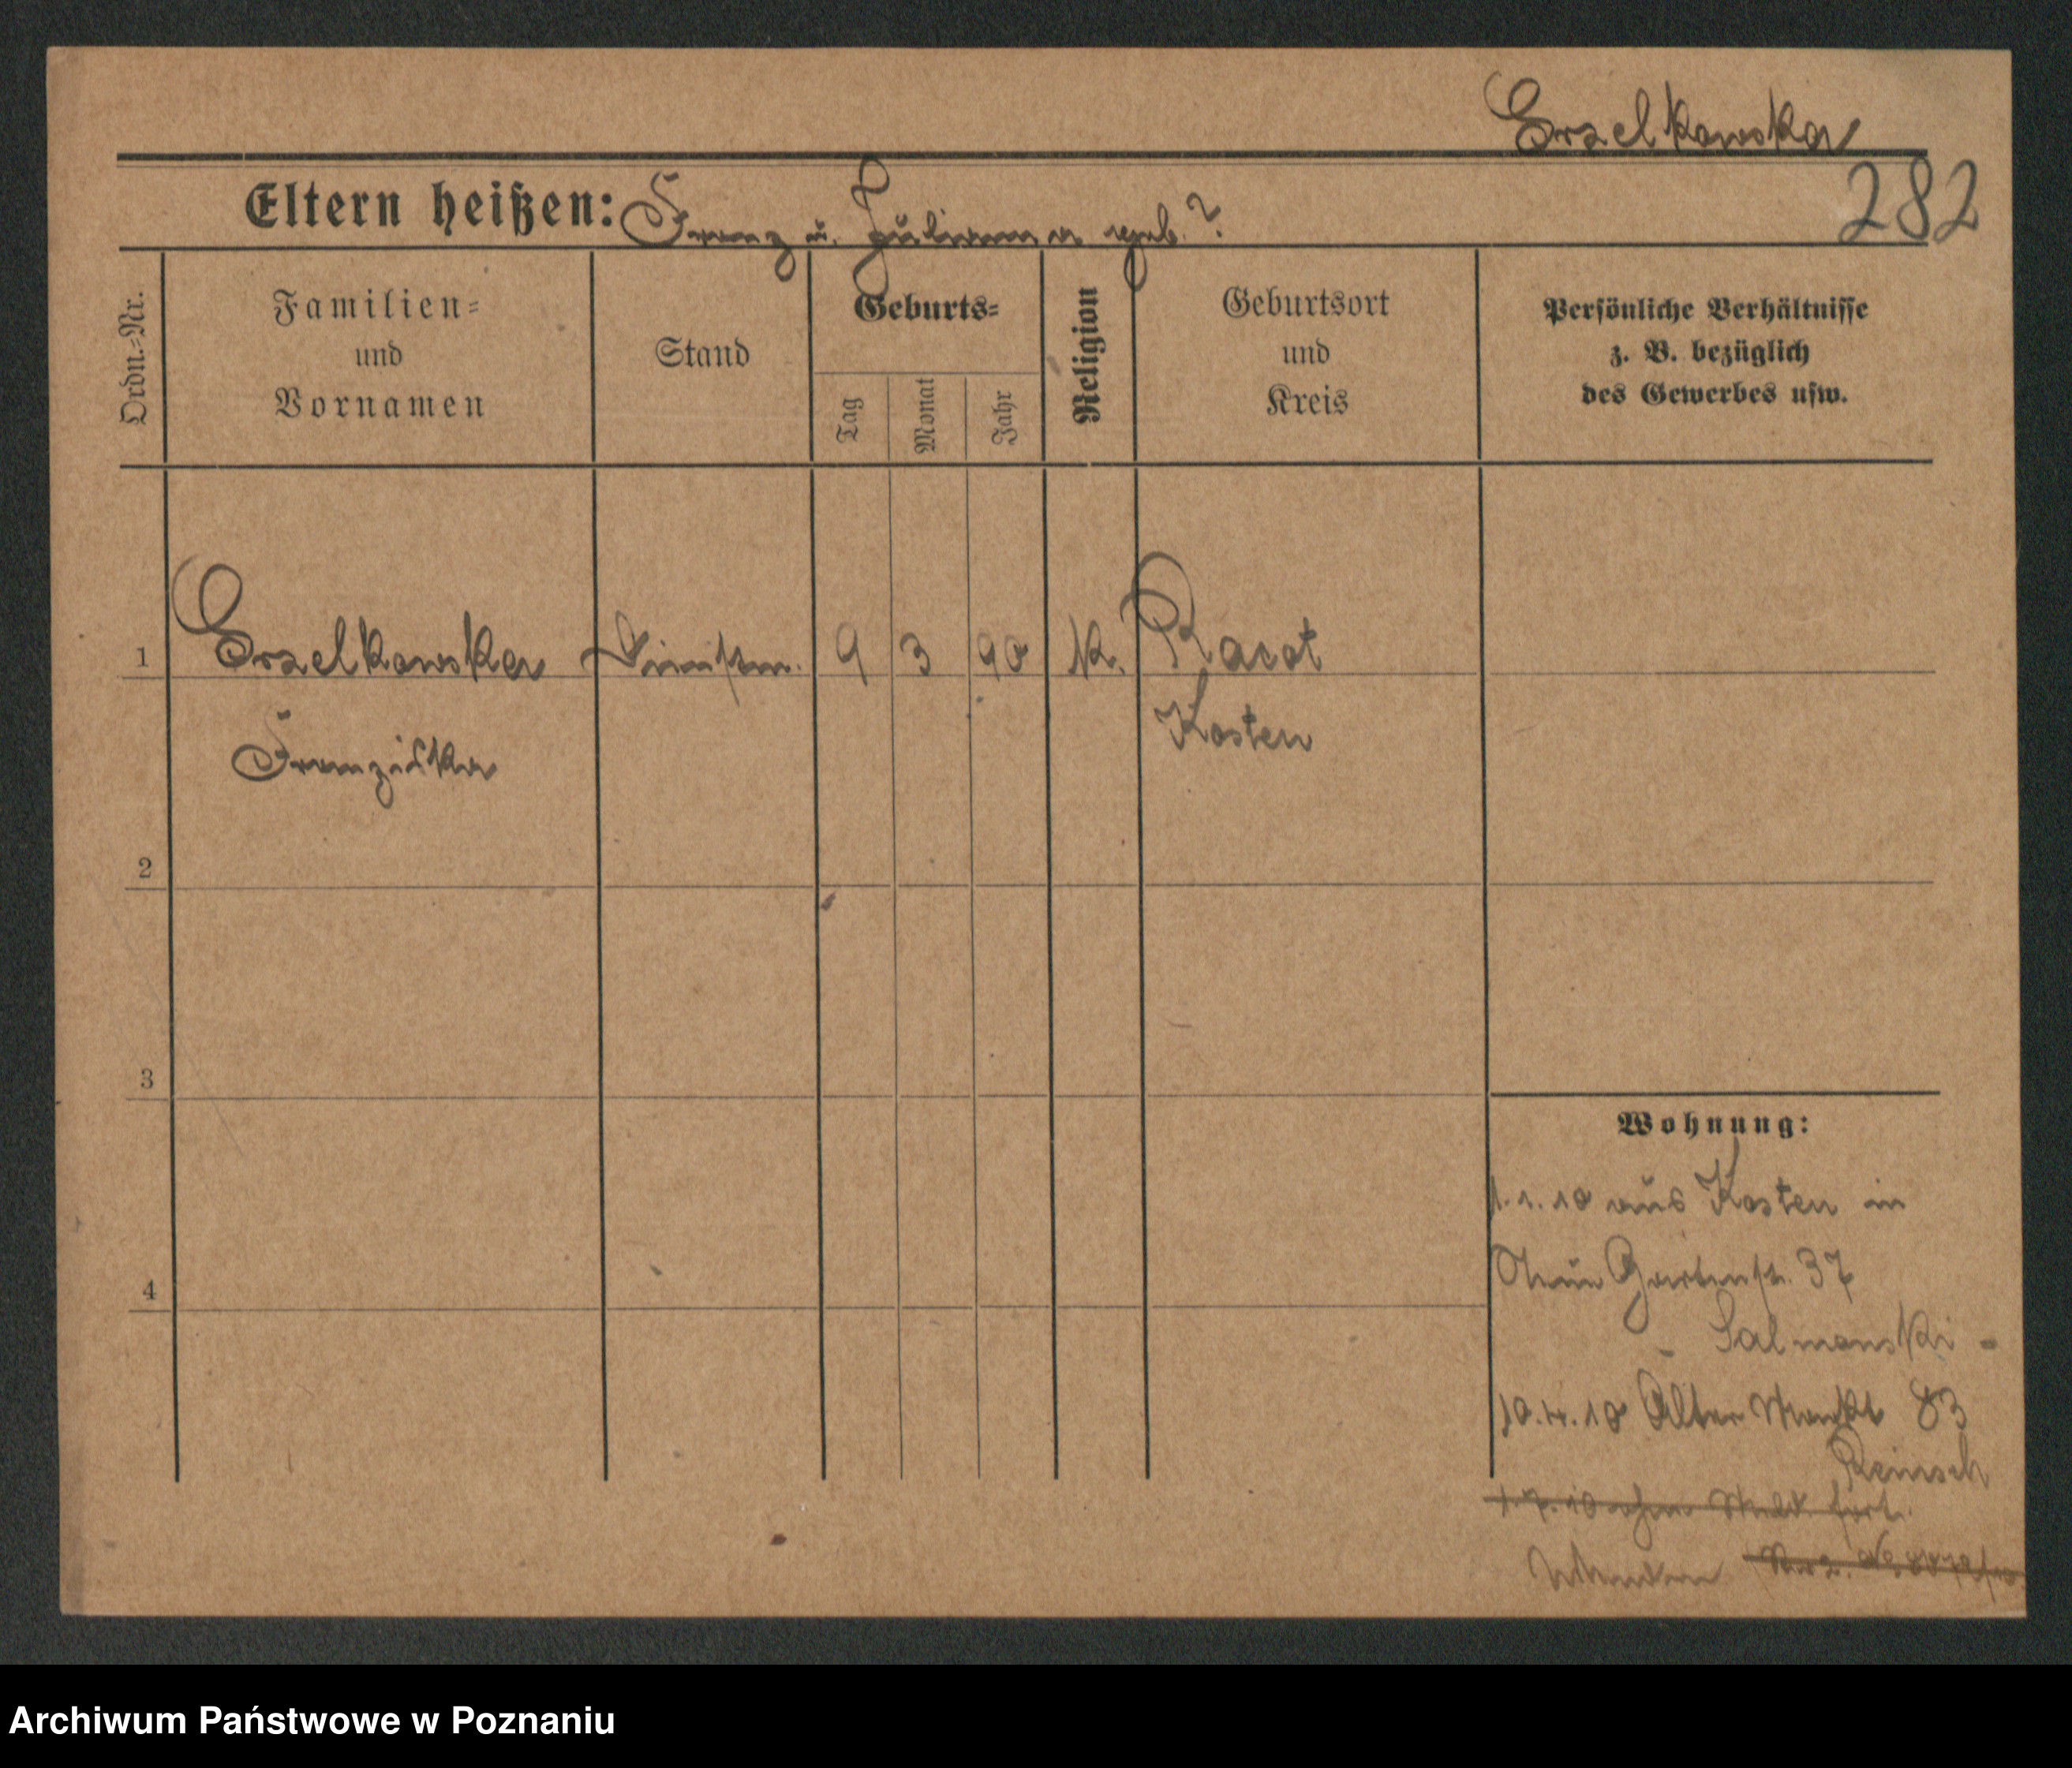 Erzelkowska
Eltern heißen: Franz u. Julianna geb. ?
282
Ordn.=Nr.
Familien=
und
Vornamen
Stand
Geburts=
Tag
Monat
Jahr
Religion
Geburtsort
und
Kreis
Persönliche Verhältnisse
z. B. bezüglich
des Gewerbes usw.
1 Erzelkowska 9 3 90 K. Racot
Kosten
Franziska
2
3
4
Wohnung:
1.1.10 aus Kosten in
Gartenstr. 37
- Salmanski -
10.4.10 Alter Markt 83
Reinsch
1.7.10 ohne Meld. fort.